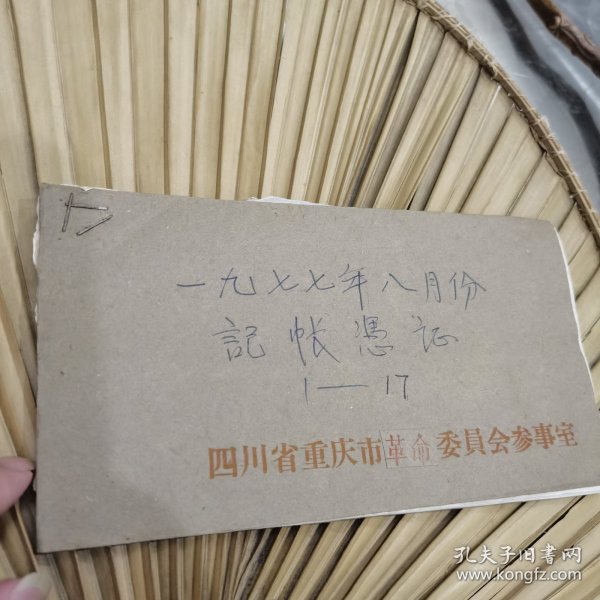 一九七七年八月份
記帐憑证
1—17
四川省重庆市革命委員会参事室
孔夫子旧书网
www.kongfz.com